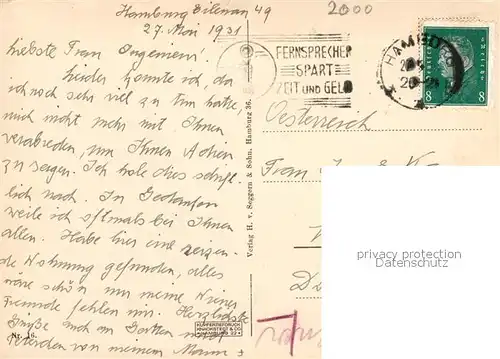 Hamburg Eilenau 49
27. Mai 1931
liebste Frau Ingenieur!
Leider konnte ich, da
ich noch sehr viel zu tun hatte,
mich nicht mehr mit Ihnen
verabreden, um Ihnen Adieu
zu sagen. Ich hole dies schrift-
lich nach. In Gedanken
weile ich oftmals bei Ihnen
allen. Habe hier eine reizen-
de Wohnung gefunden, alles
wäre schön nur meine Wiener
Freunde fehlen mir. Herzlichste
Grüße auch an Gatten
von meinem Mann +
Nr. 16.
Verlag H. v. Seggern & Sohn, Hamburg 36.
KUPFERTIEFDRUCK
HAMBURG 22
2000
FERNSPRECHER
SPART
ZEIT UND GELD
HAMBURG
8 8
Oesterreich
Frau
privacy protection
Datenschutz